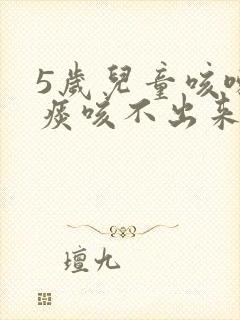 5歲兒童咳嗽
痰咳不出來
壇九